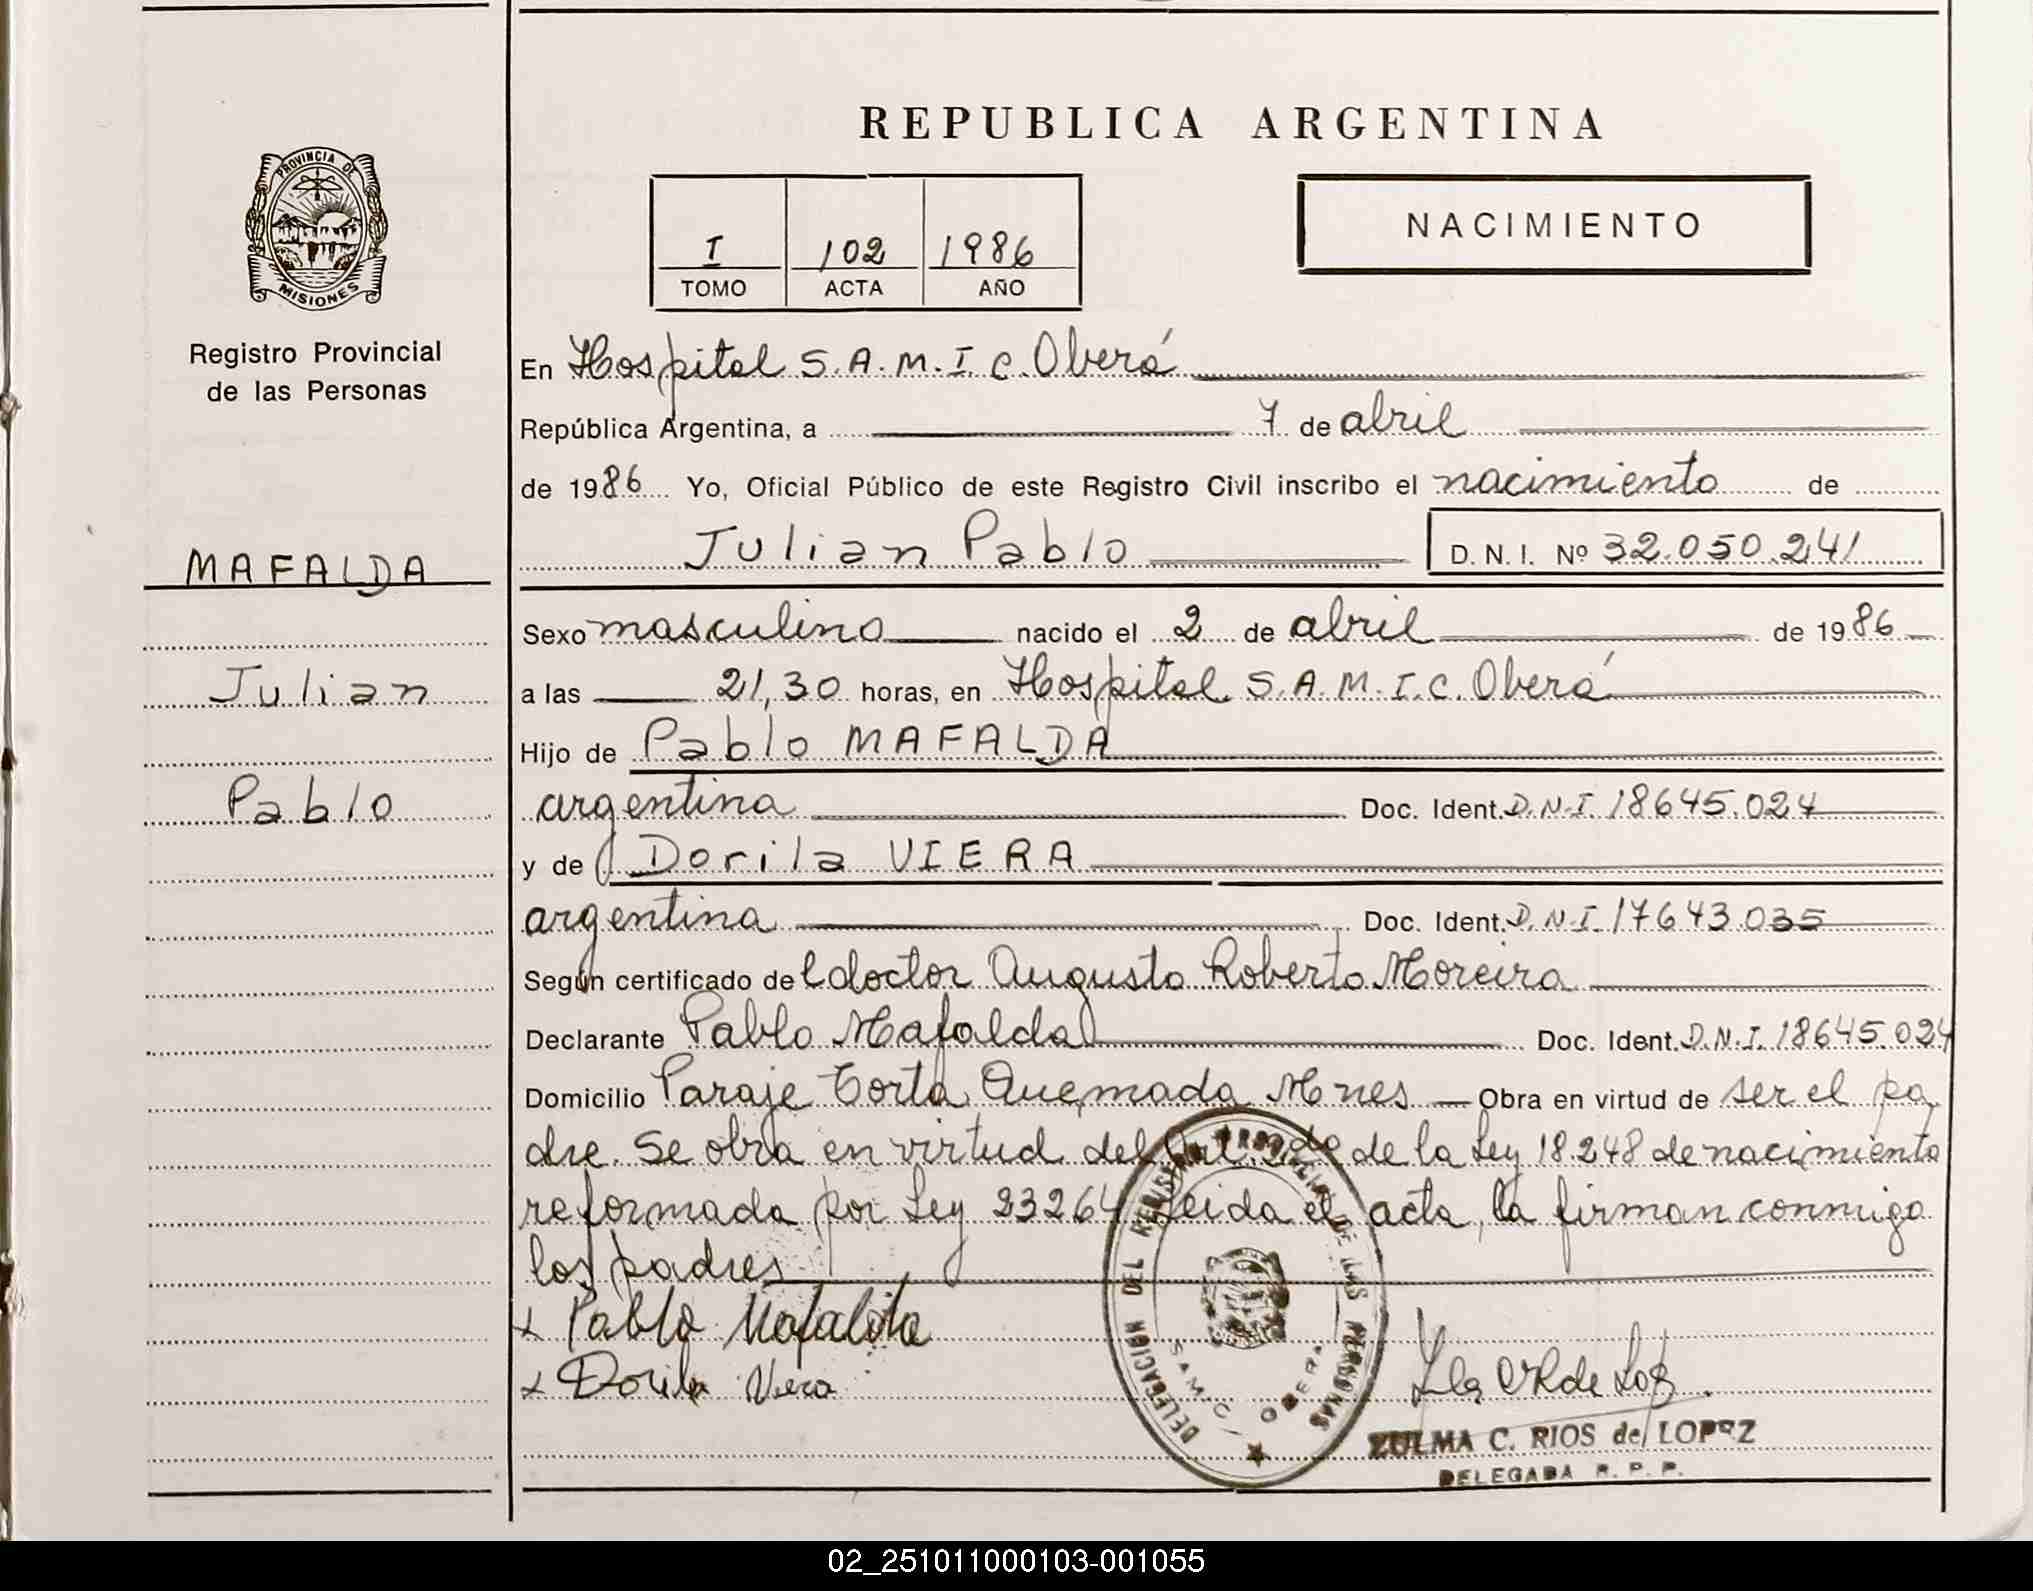 REPUBLICA ARGENTINA
PROVINCIA DE
MISIONES
Registro Provincial
de las Personas
I 102 1986
TOMO ACTA AÑO
NACIMIENTO
En Hospital S.A.M.I.C. Oberá
República Argentina, a 7 de abril
de 1986 Yo, Oficial Público de este Registro Civil inscribo el nacimiento de
Julian Pablo D.N.I. Nº 32.050.241
MAFALDA
Julian
Pablo
Sexo masculino nacido el 2 de abril de 1986
a las 21,30 horas, en Hospital S.A.M.I.C. Oberá
Hijo de Pablo MAFALDA
argentina Doc. Ident. D.N.I. 18645.024
y de Dorila VIERA
argentina Doc. Ident. D.N.I. 17643.035
Según certificado del doctor Augusto Roberto Moreira
Declarante Pablo Mafalda Doc. Ident. D.N.I. 18645.024
Domicilio Paraje Torta Quemada Mnes Obra en virtud de ser el pa
dre. Se obra en virtud del Art. de la Ley 18.248 de nacimiento
reformada por Ley 23264 leida el acta, la firman conmigo
los padres
x Pablo Mafalda
x Dorila Viera
DELEGACION DEL REGISTRO PROVINCIAL DE LAS PERSONAS
SAMIC OBERA
ZULMA C. RIOS de LOPEZ
DELEGADA R.P.P.
02_251011000103-001055